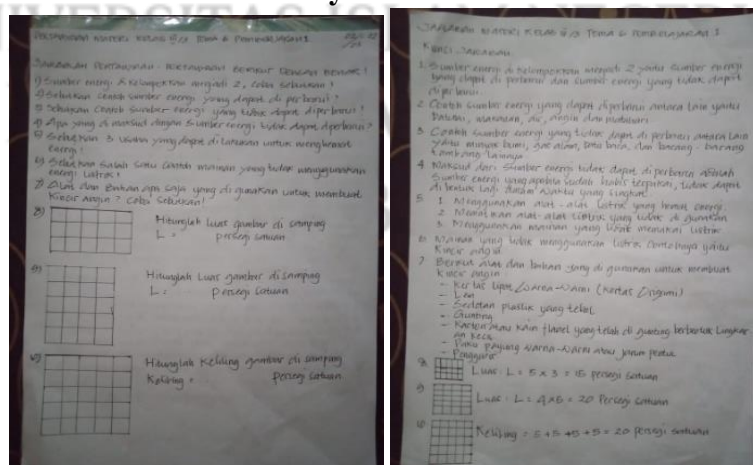 Jawablah Pertanyaan-Pertanyaan berikut dengan benar!
1) Sumber energi di kelompokkan menjadi 2, coba sebutkan!
2) Sebutkan contoh sumber energi yang dapat di perbarui?
3) Sebutkan Contoh sumber energi yang tidak dapat diperbarui?
4) Apa yang di maksud dengan sumber energi tidak dapat diperbarui?
5) Sebutkan 3 usaha yang dapat di lakukan untuk menghemat
energi!
6) Sebutkan Salah Satu Contoh mainan yang tidak menggunakan
energi Listrik!
7) Alat dan Bahan apa saja yang di gunakan untuk membuat
Kincir angin? Coba Sebutkan!
8)
Hitunglah Luas gambar di samping
L = persegi satuan
9)
Hitunglah Luas gambar di samping
L = Persegi Satuan
10)
Hitunglah Keliling gambar di samping
Keliling = persegi satuan
Jawaban Materi Kelas Tema 6 Pembelajaran 1
Kunci Jawaban
1. Sumber energi di kelompokkan menjadi 2 yaitu sumber energi
yang dapat di perbarui dan sumber energi yang tidak dapat
diperbarui
2. Contoh sumber energi yang dapat diperbarui antara lain yaitu
makanan, air, angin dan matahari
3. Contoh sumber energi yang tidak dapat di perbarui antara lain
yaitu minyak bumi, gas alam, batu bara, dan barang-barang
tambang lainnya
4. Maksud dari sumber energi tidak dapat diperbarui adalah
Sumber energi yang apabila sudah habis terpakai, tidak dapat
di bentuk lagi dalam waktu yang singkat
5. 1. Menggunakan alat-alat listrik yang hemat energi.
2. Mematikan alat-alat listrik yang tidak di gunakan
3. Menggunakan mainan yang tidak memakai listrik
6. Mainan yang tidak menggunakan listrik contohnya yaitu
Kincir angin
7. Berikut alat dan bahan yang di gunakan untuk membuat
kincir angin
- Kertas lipat warna-warni (kertas Origami)
- Lem
- Sedotan plastik yang tebal
- Gunting
- Karton atau kain flanel yang telah di gunting berbentuk lingkar
an kecil
- Paku payung warna-warni atau jarum pentul
- Penggaris
8) Luas: L = 5 x 3 = 15 persegi satuan
9) Luas: L = 4 x 5 = 20 Persegi Satuan
10) Keliling = 5 + 5 + 5 + 5 = 20 persegi satuan